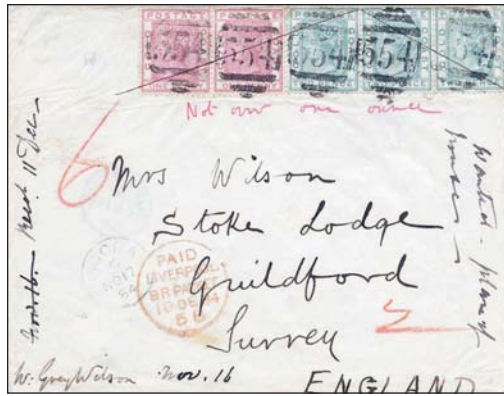 POSTAGE POSTAGE
554 554 554 554
Not over one ounce
6
Mrs Wilson
Stoke Lodge
Guildford
Surrey
ENGLAND
PAID
LIVERPOOL
BR PACKET
NO 17
84
11 Dec
Wanted - plan of
house
W. Grey Wilson Nov. 16